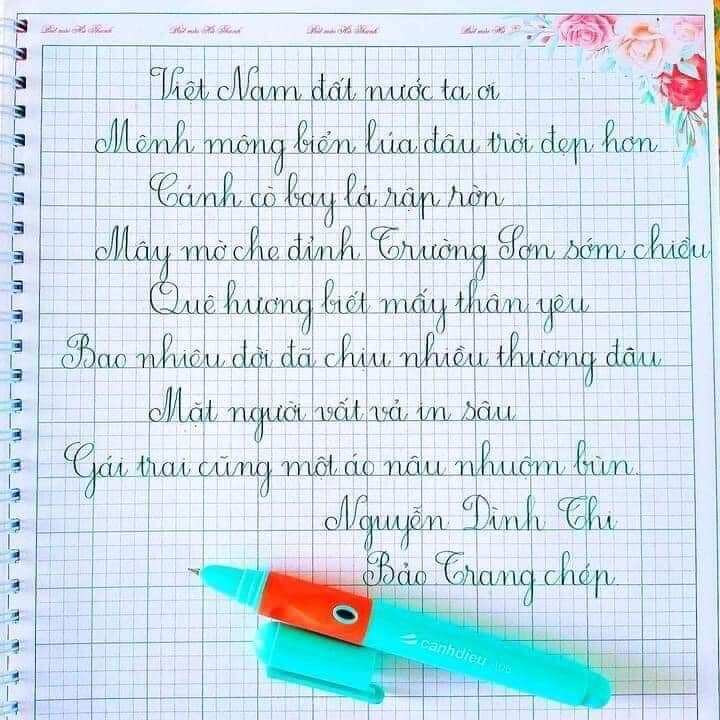 Bút mài Hà Thanh Bút mài Hà Thanh Bút mài Hà Thanh Bút mài Hà
Việt Nam đất nước ta ơi
Mênh mông biển lúa đâu trời đẹp hơn
Cánh cò bay lả rập rờn
Mây mờ che đỉnh Trường Sơn sớm chiều
Quê hương biết mấy thân yêu
Bao nhiêu đời đã chịu nhiều thương đâu
Mặt người vất vả in sâu
Gái trai cũng một áo nâu nhuộm bùn.
Nguyễn Đình Thi
Bảo Trang chép.
canhdieu